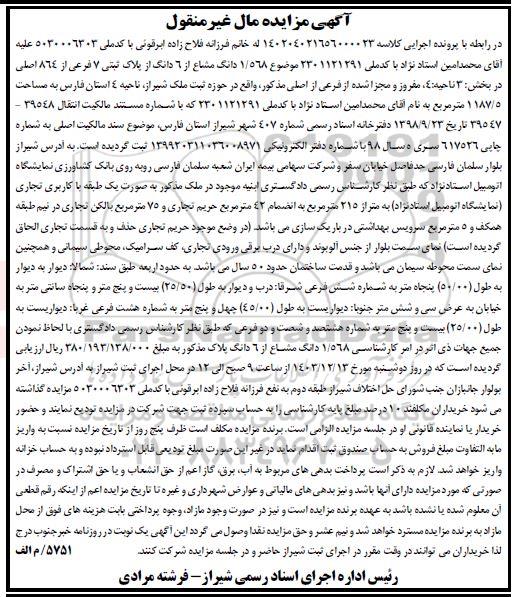 آگهی مزایده مال غیرمنقول
در رابطه با پرونده اجرایی کلاسه ۱۴۰۲۰۴۰۲۱۶۵۶۰۰۰۰۲۳ له خانم فرزانه فلاح زاده ابرقوئی با کدملی ۵۰۳۰۰۰۶۳۰۳ علیه
آقای محمدامین استاد نژاد با کدملی ۲۳۰۱۱۲۱۲۹۱ موضوع ۱/۵۶۸ دانگ مشاع از ۶ دانگ از پلاک ثبتی ۷ فرعی از ۸۶۴ اصلی
در بخش: ۳ ناحیه: ۴، مفروز و مجزا شده از فرعی از اصلی مذکور، واقع در حوزه ثبت ملک شیراز، ناحیه ۴ استان فارس به مساحت
۱۱۸۷/۵ مترمربع به نام آقای محمدامین استاد نژاد با کدملی ۲۳۰۱۱۲۱۲۹۱ که با شماره مستند مالکیت انتقال ۳۹۵۴۸ -
۳۹۵۴۷ تاریخ ۱۳۹۸/۹/۲۳ دفترخانه اسناد رسمی شماره ۴۰۷ شهر شیراز استان فارس، موضوع سند مالکیت اصلی به شماره
چاپی ۶۱۷۵۲۶ سری ه سال ۹۸ با شماره دفتر الکترونیکی ۱۳۹۹۲۰۳۱۱۰۳۶۰۰۸۹۷۱ ثبت گردیده است. به آدرس شیراز
بلوار سلمان فارسی حدفاصل خیابان سفر و شرکت سهامی بیمه ایران شعبه سلمان فارسی روبه روی بانک کشاورزی نمایشگاه
اتومبیل استادنژاد که طبق نظر کارشناس رسمی دادگستری ابنیه موجود در ملک مذکور به صورت یک طبقه با کاربری تجاری
(نمایشگاه اتومبیل استادنژاد) به متراژ ۲۱۵ مترمربع به انضمام ۴۲ مترمربع حریم تجاری و ۷۵ مترمربع بالکن تجاری در نیم طبقه
همکف و ۵ مترمربع سرویس بهداشتی در باریک سازی می باشد. (در وضع موجود حریم تجاری حذف و به قسمت تجاری الحاق
گردیده است) نمای سمت بلوار از جنس آلوبوند و دارای درب برقی ورودی تجاری، کف سرامیک، محوطی سیمانی و همچنین
نمای سمت محوطه سیمان می باشد و قدمت ساختمان حدود ۵۰ سال می باشد. به حدود اربعه طبق سند: شمالا: دیوار به دیوار
به طول (۵۰/۰۰) پنجاه متر به شماره شش فرعی شرقا: درب و دیوار به طول (۲۵/۵۰) بیست و پنج متر و پنجاه سانتی متر به
خیابان به عرض سی و شش متر جنوبا: دیواریست به طول (۴۵/۰۰) چهل و پنج متر به شماره هشت فرعی غربا: دیواریست به
طول (۲۵/۰۰) بیست و پنج متر به شماره هشتصد و شصت و دو فرعی که طبق نظر کارشناس رسمی دادگستری با لحاظ نمودن
جمیع جهات ذی اثر در امر کارشناسی ۱/۵۶۸ دانگ مشاع از ۶ دانگ پلاک مذکور به مبلغ ۳۸۰/۱۹۳/۱۳۸/۰۰۰ ریال ارزیابی
گردیده است که در روز دوشنبه مورخ ۱۴۰۳/۱۲/۱۳ از ساعت ۹ صبح الی ۱۲ در محل اجرای ثبت شیراز به آدرس شیراز، آخر
بولوار جانبازان جنب شورای حل اختلاف شیراز طبقه دوم به نفع فرزانه فلاح زاده ابرقوئی با کدملی ۵۰۳۰۰۰۶۳۰۳ مزایده گذاشته
می شود خریداران مکلفند ۱۰ درصد مبلغ پایه کارشناسی را به حساب سپرده ثبت جهت شرکت در مزایده تودیع نمایند و حضور
خریدار یا نماینده قانونی او در جلسه مزایده الزامی است. برنده مزایده مکلف است ظرف پنج روز از تاریخ مزایده نسبت به واریز
مابه التفاوت مبلغ فروش به حساب صندوق ثبت اقدام نماید در غیر این صورت مبلغ تودیعی قابل استرداد نبوده و به حساب خزانه
واریز خواهد شد. لازم به ذکر است پرداخت بدهی های مربوط به آب، برق، گاز اعم از حق انشعاب و یا حق اشتراک و مصرف در
صورتی که مورد مزایده دارای آنها باشد و نیز بدهی های مالیاتی و عوارض شهرداری و غیره تا تاریخ مزایده اعم از اینکه رقم قطعی
آن معلوم شده یا نشده باشد به عهده برنده مزایده است و نیز در صورت وجود مازاد، وجوه پرداختی بابت هزینه های فوق از محل
مازاد به برنده مزایده مسترد خواهد شد و نیم عشر و حق مزایده نقدا وصول می گردد این آگهی یک نوبت در روزنامه خبرجنوب درج
لذا خریداران می توانند در وقت مقرر در اجرای ثبت شیراز حاضر و در جلسه مزایده شرکت کنند. ۵۷۵۱/ م الف
رئیس اداره اجرای اسناد رسمی شیراز - فرشته مرادی